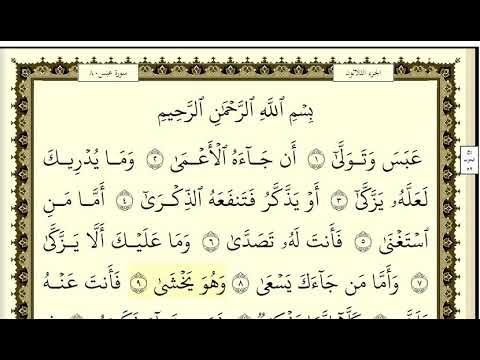 الجزء الثلاثون
سورة عبس ٨٠
بِسْمِ ٱللَّهِ ٱلرَّحْمَٰنِ ٱلرَّحِيمِ
عَبَسَ وَتَوَلَّىٰٓ ١ أَن جَآءَهُ ٱلْأَعْمَىٰ ٢ وَمَا يُدْرِيكَ
لَعَلَّهُۥ يَزَّكَّىٰٓ ٣ أَوْ يَذَّكَّرُ فَتَنفَعَهُ ٱلذِّكْرَىٰٓ ٤ أَمَّا مَنِ
ٱسْتَغْنَىٰ ٥ فَأَنتَ لَهُۥ تَصَدَّىٰ ٦ وَمَا عَلَيْكَ أَلَّا يَزَّكَّىٰ
٧ وَأَمَّا مَن جَآءَكَ يَسْعَىٰ ٨ وَهُوَ يَخْشَىٰ ٩ فَأَنتَ عَنْهُ